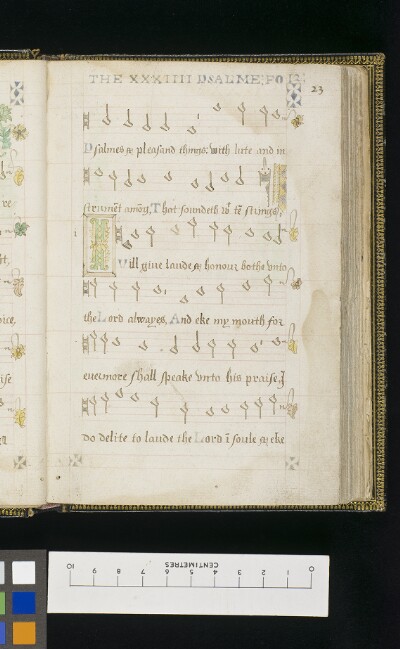 THE XXXIIII PSALME: FO 12:
23
Psalmes & pleasand things: with lute and in
strumēt amōg, That soundeth wt tē strings,
I Will giue laude & honour bothe vnto
the Lord alwayes, And eke my mouth for
euermore shall speake vnto his praise, I
do delite to laude the Lord ī soule & eke
re
ht,
orce,
ise
0 1 2 3 4 5 6 7 8 9 10
CENTIMETRES